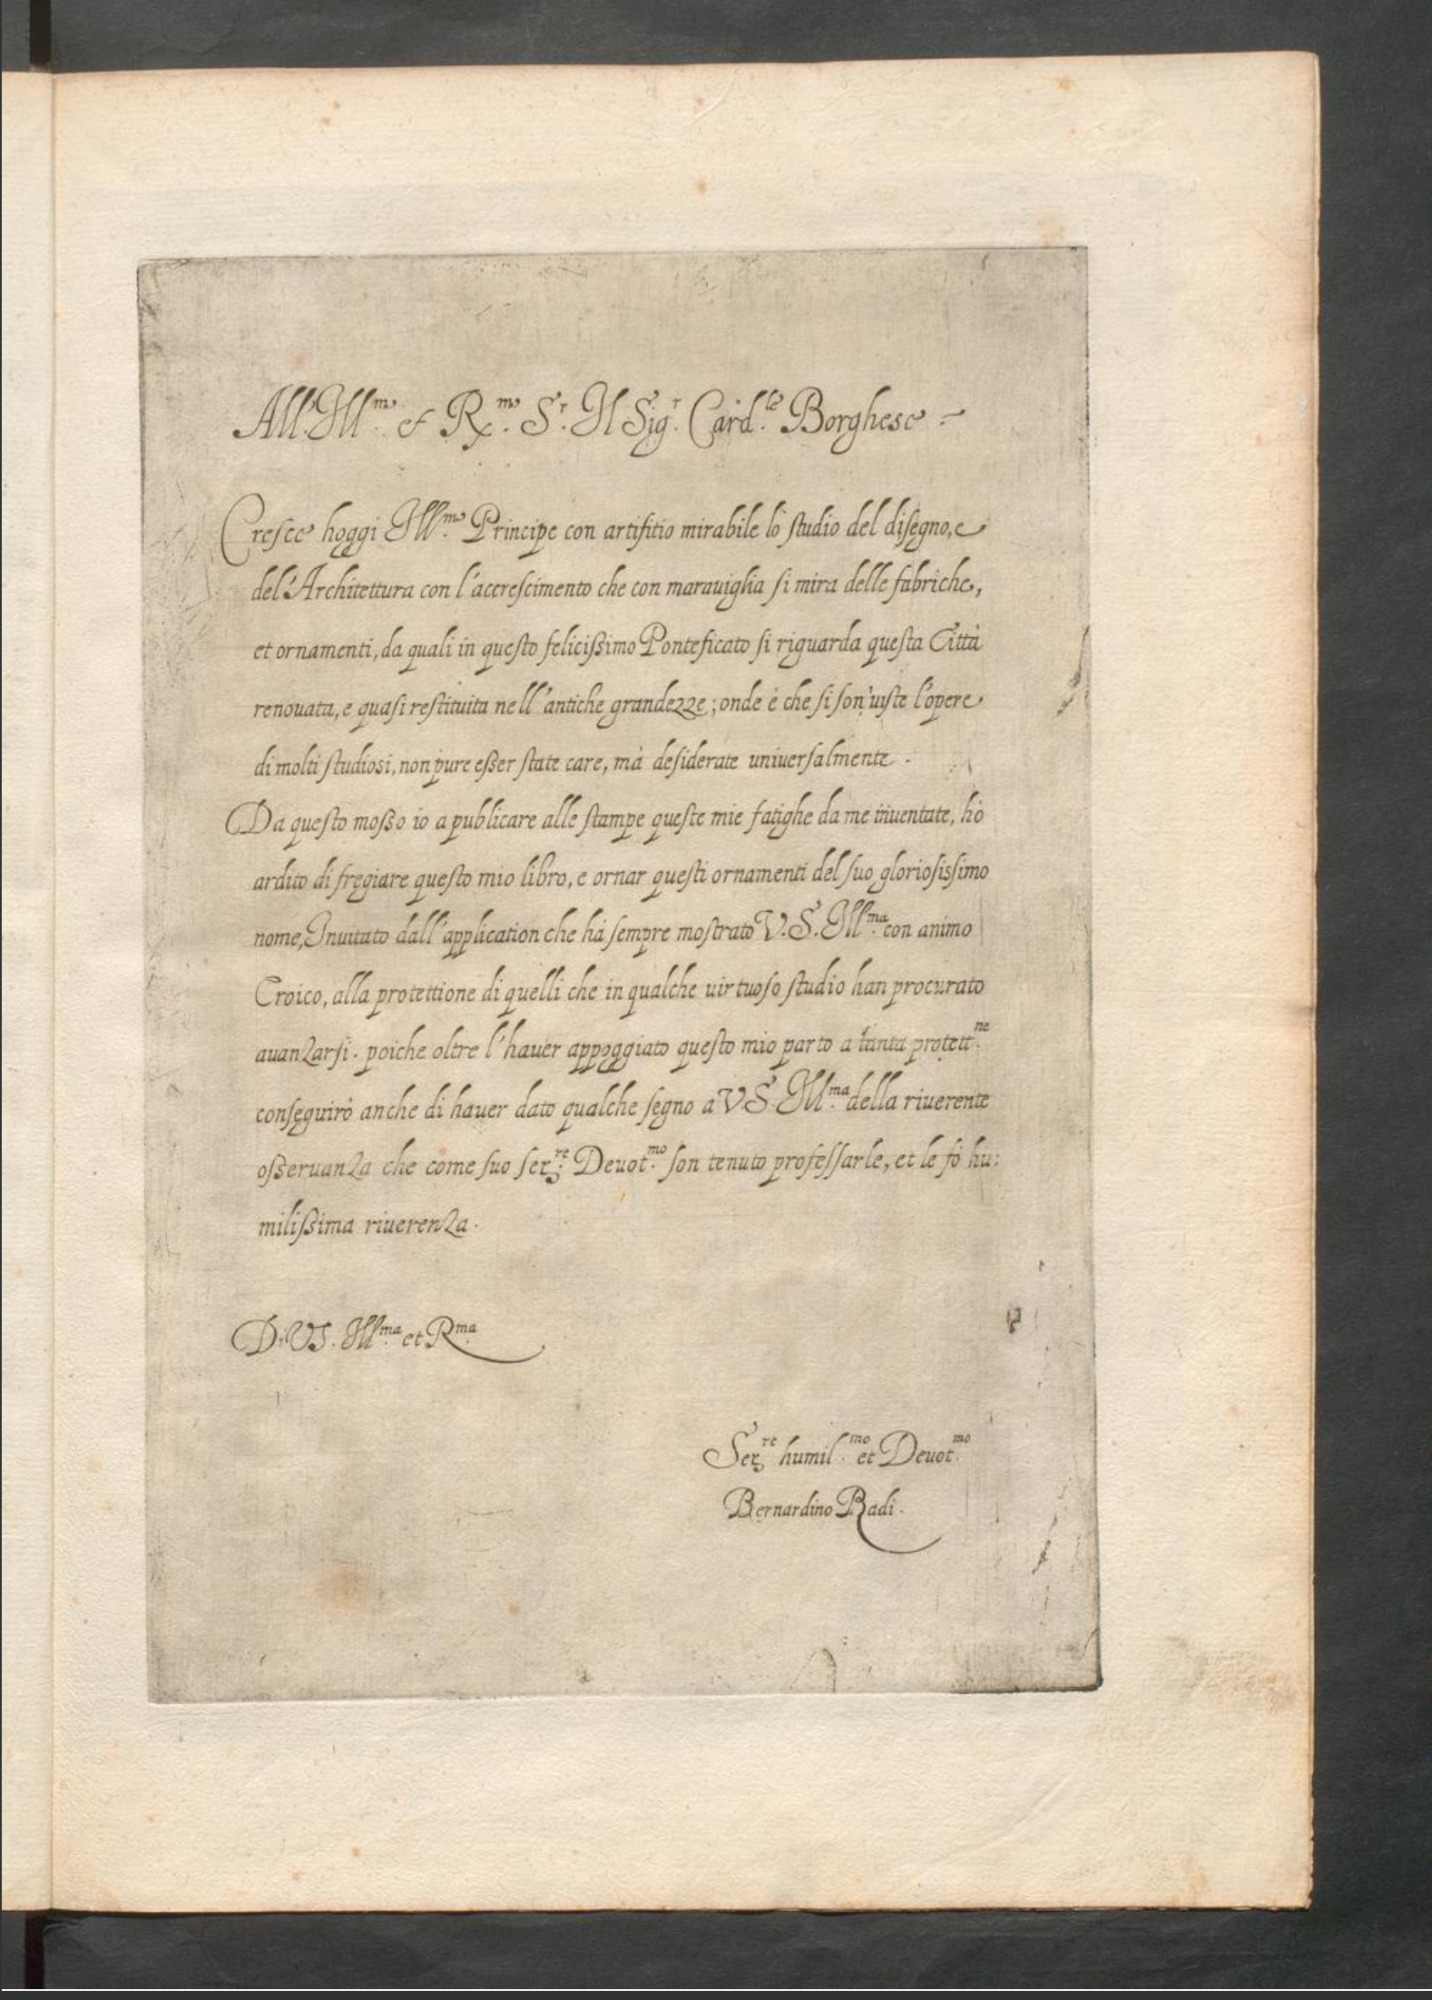 All' Ill.^mo et R.^mo S.^r Il Sig.^r Card.^le Borghese
Cresce hoggi Ill.^mo Principe con artifitio mirabile lo studio del disegno, e
del'Architettura con l'accrescimento che con marauiglia si mira delle fabriche,
et ornamenti, da quali in questo felicissimo Ponteficato si riguarda questa Città
renouata, e quasi restituita nell'antiche grandezze; onde è che si son'uiste l'opere
di molti studiosi, non pure esser state care, mà desiderate uniuersalmente.
Da questo mosso io a publicare alle stampe queste mie fatighe da me inuentate, hò
ardito di fregiare questo mio libro, e ornar questi ornamenti del suo gloriosissimo
nome, Inuitato dall'application che hà sempre mostrato V.S. Ill.^ma con animo
Eroico, alla protettione di quelli che in qualche uirtuoso studio han procurato
auanzarsi. poiche oltre l'hauer appoggiato questo mio parto a tanta protett.^ne
conseguirò anche di hauer dato qualche segno a V.S. Ill.^ma della riuerente
osseruanza che come suo ser.^re Deuot.^mo son tenuto professarle, et le fò hu:
milissima riuerenza.
D. V.S. Ill.^ma et R.^ma
Ser.^re humil.^mo et Deuot.^mo
Bernardino Radi.